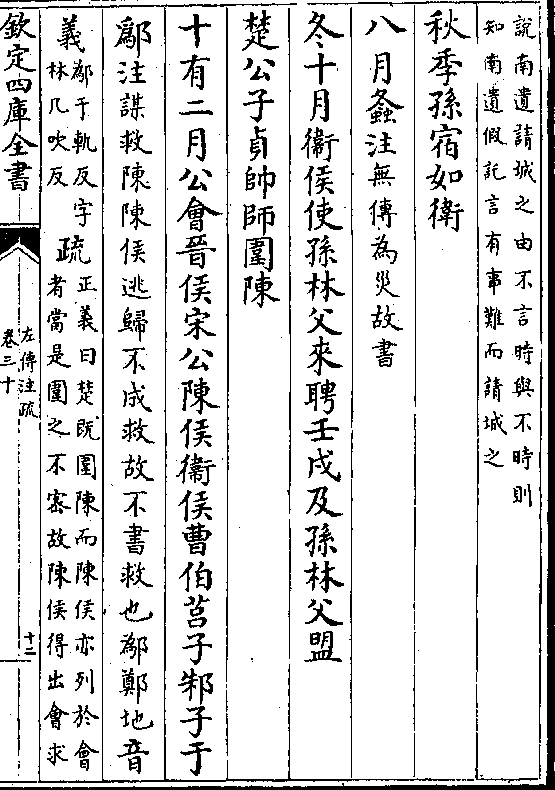 說南遺請城之由不言時與不時則
知南遺假託言有事難而請城之
秋季孫宿如衛
八月螽注無傳為災故書
冬十月衛侯使孫林父來聘壬戌及孫林父盟
楚公子貞帥師圍陳
十有二月公會晉侯宋公陳侯衛侯曹伯莒子邾子于
鄬注謀救陳陳侯逃歸不成救故不書救也鄬鄭地音
義鄬于軌反字
林几吹反
疏正義曰楚既圍陳而陳侯亦列於會
者當是圍之不密故陳侯得出會求
欽定四庫全書
左傳注疏
卷三十
十二